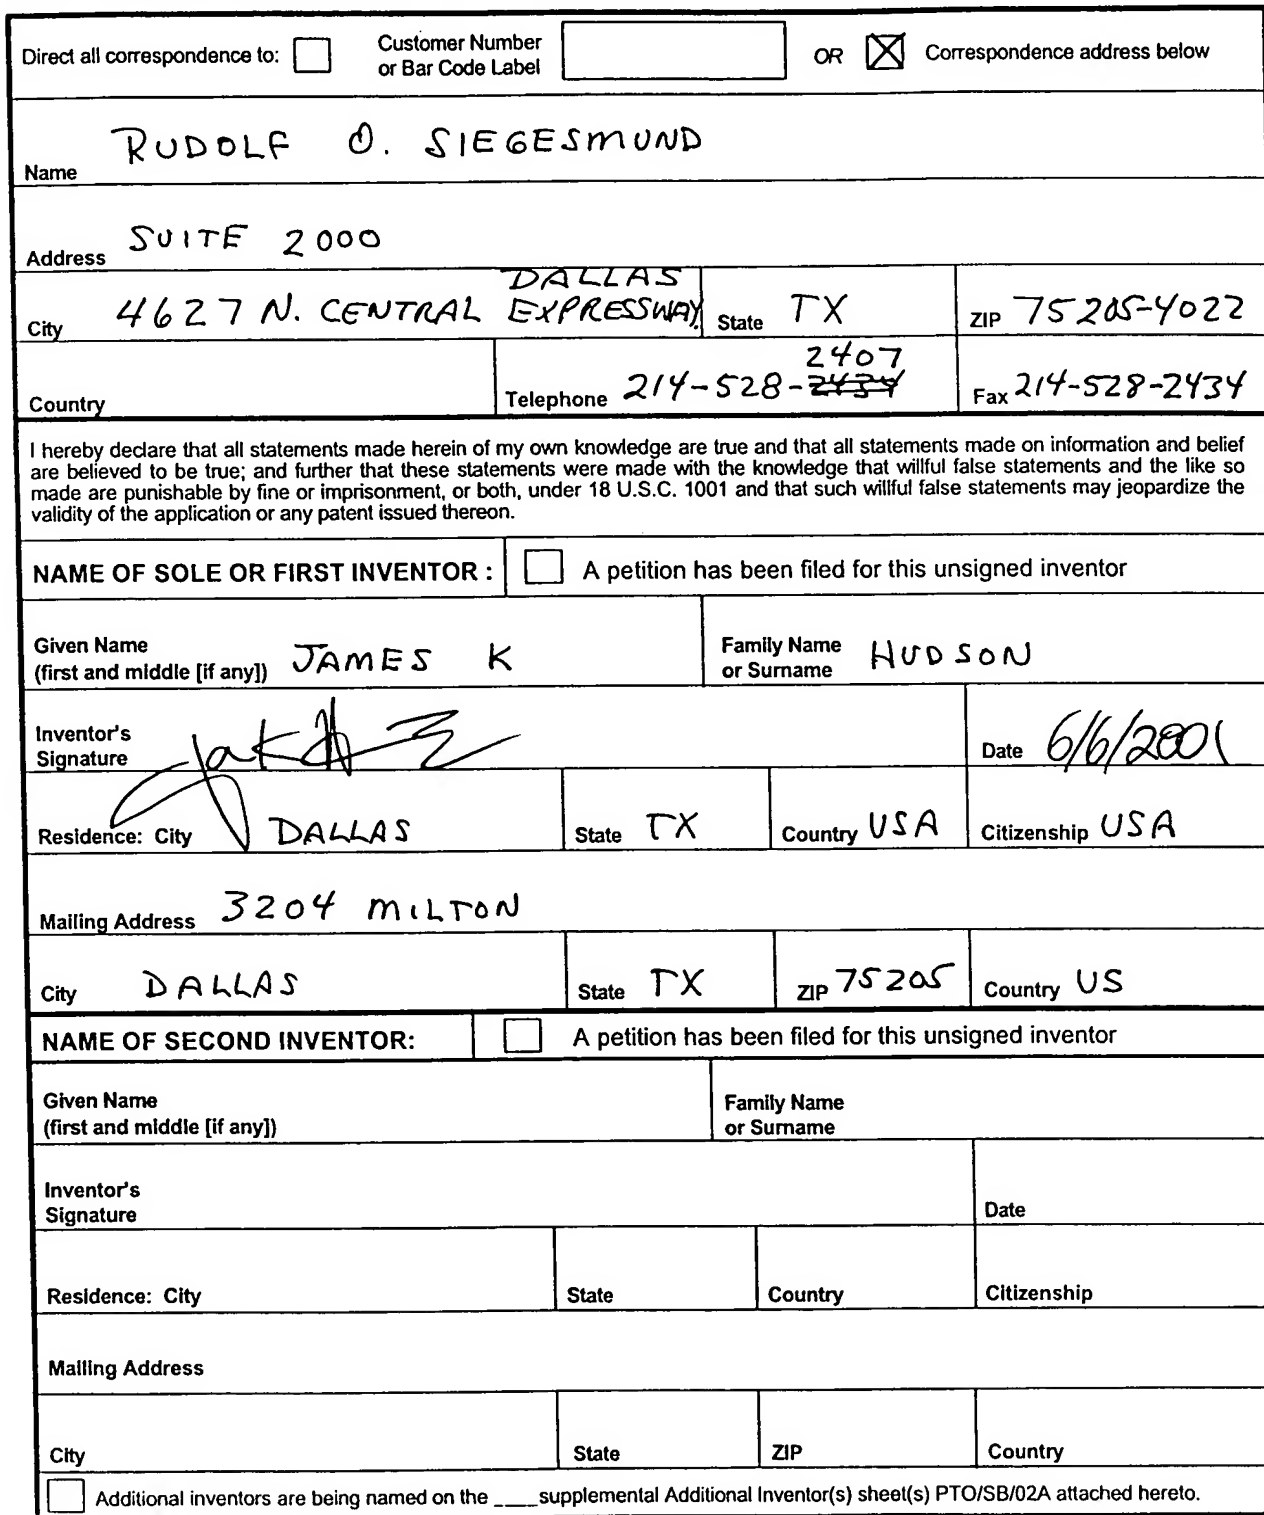 Direct all correspondence to: Customer Number or Bar Code Label OR Correspondence address below
Name RUDOLF O. SIEGESMUND
Address SUITE 2000
DALLAS
City 4627 N. CENTRAL EXPRESSWAY State TX ZIP 75205-4022
2407
Country Telephone 214-528-2434 Fax 214-528-2434
I hereby declare that all statements made herein of my own knowledge are true and that all statements made on information and belief
are believed to be true; and further that these statements were made with the knowledge that willful false statements and the like so
made are punishable by fine or imprisonment, or both, under 18 U.S.C. 1001 and that such willful false statements may jeopardize the
validity of the application or any patent issued thereon.
NAME OF SOLE OR FIRST INVENTOR : A petition has been filed for this unsigned inventor
Given Name
(first and middle [if any]) JAMES K
Family Name
or Surname HUDSON
Inventor's
Signature
Date 6/6/2001
Residence: City DALLAS State TX Country USA Citizenship USA
Mailing Address 3204 MILTON
City DALLAS State TX ZIP 75205 Country US
NAME OF SECOND INVENTOR: A petition has been filed for this unsigned inventor
Given Name
(first and middle [if any])
Family Name
or Surname
Inventor's
Signature
Date
Residence: City State Country Citizenship
Mailing Address
City State ZIP Country
Additional inventors are being named on the ____supplemental Additional Inventor(s) sheet(s) PTO/SB/02A attached hereto.